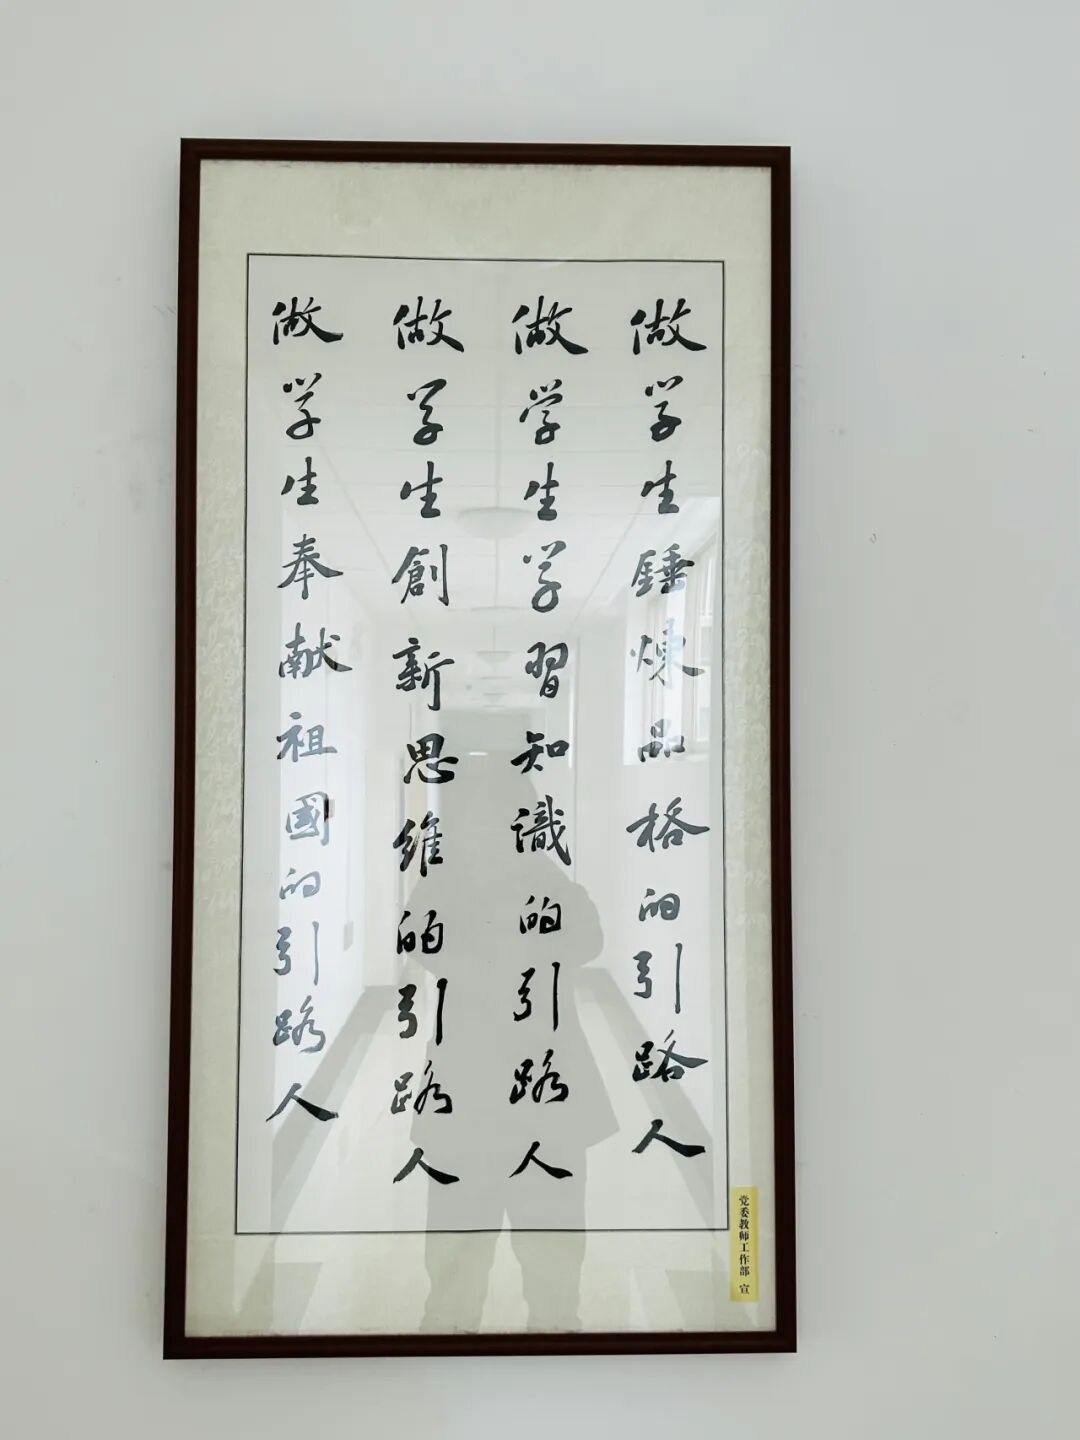 做学生錘煉品格的引路人
做学生学習知識的引路人
做学生創新思維的引路人
做学生奉献祖國的引路人
党委教师工作部 宣